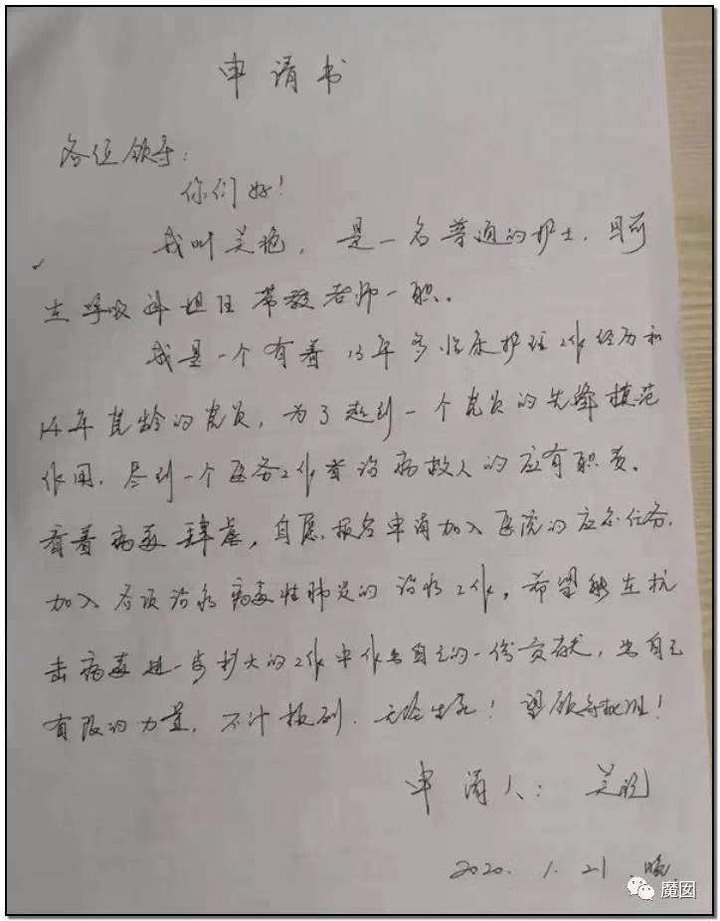 申请书
各位领导:
你们好!
我叫吴艳,是一名普通的护士,目前
在呼吸科担任带教老师一职。
我是一个有着13年多临床护理工作经历和
14年党龄的党员,为了起到一个党员的先锋模范
作用,尽到一个医务工作者治病救人的应有职责。
看着病毒肆虐,自愿报名申请加入医院的应急任务.
加入各项治疗病毒性肺炎的治疗工作,希望能在抗
击病毒进一步扩大的工作中作出自己的一份贡献,出自己
有限的力量,不计报酬.无论生死!望领导批准!
申请人:吴艳
2020.1.21 晚.
魔囡